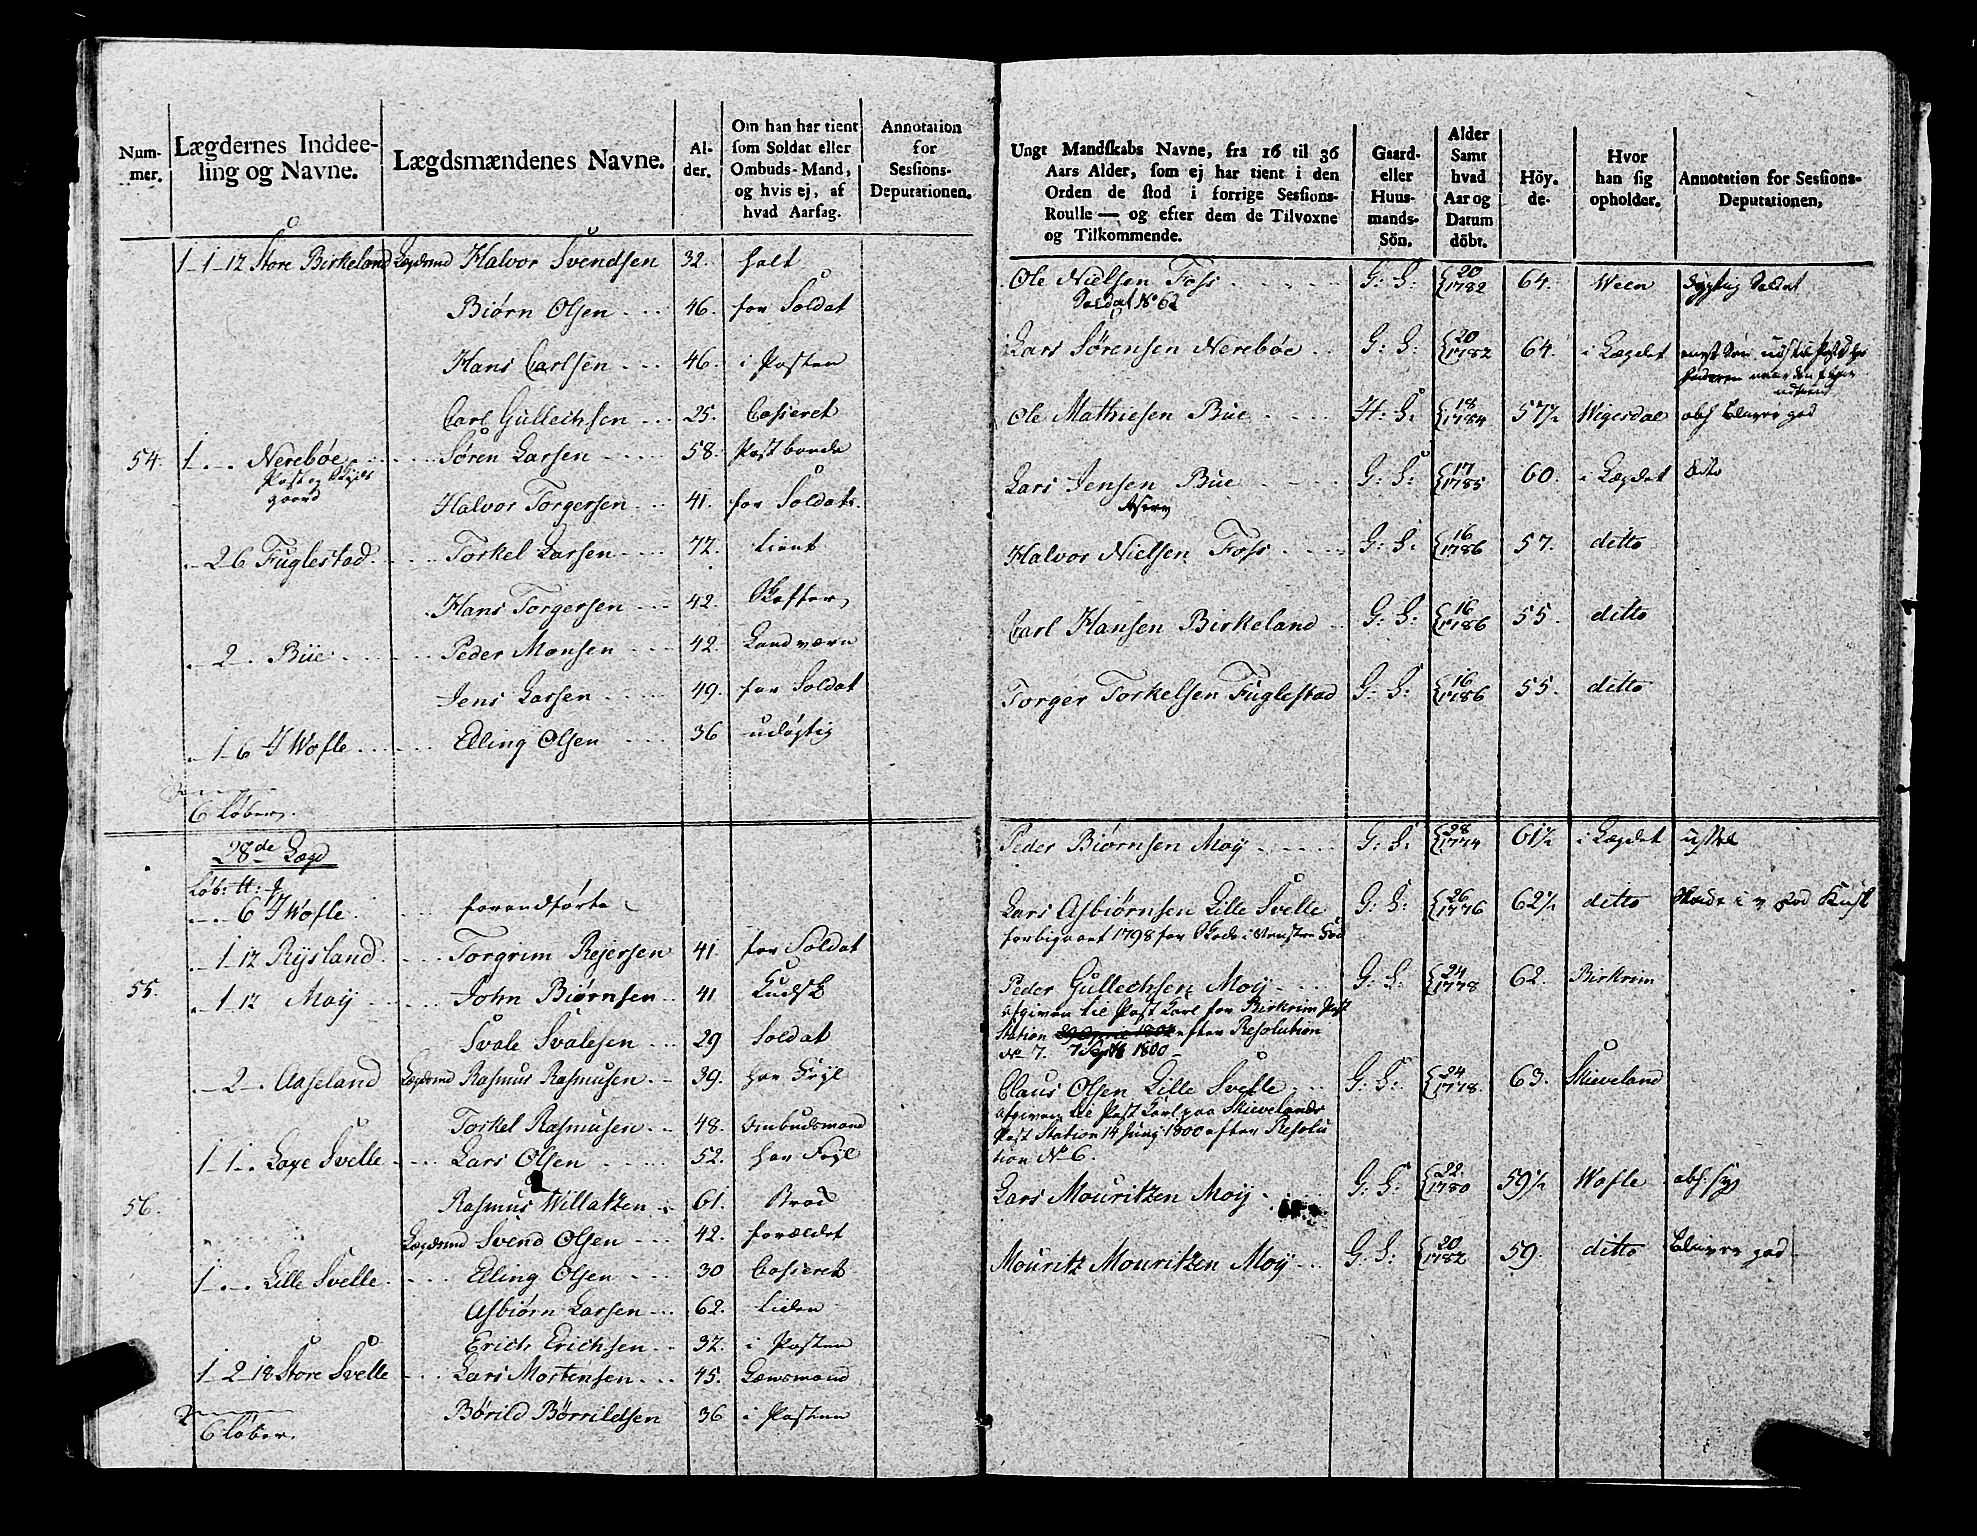 Num-
mer.
Lægdernes Inddee-
ling og Navne.
Lægdsmændenes Navne.
Al-
der.
Om han har tient
som Soldat eller
Ombuds-Mand,
og hvis ej, af
hvad Aarsag.
Annotation
for
Sessions-
Deputationen.
1 - 1 - 12 Store Birkeland Lægdsmd Halvor Svendsen 32. halt
Biørn Olsen 46. for Soldat
Hans Carlsen 46. i Posten
Carl Gullechsen 25. Casseret
54. 1 . - Nerebøe Søren Larsen 58. Postbonde
Post og
gaard
Halvor Torgersen 41. for Soldat
. - 2 6 Fuglestad Torkel Larsen 72. Lient
Hans Torgersen 42. Skafter
. - 2 - Büe Peder Monsen 42. Landværn
Jens Larsen 49. for Soldat
. - 1 6 I Wofle Elling Olsen 36 udøgtig
6 Løber.
28de Lægd
Løb: H:
. - . 6 I Wofle foranførte
. - 1 12 Rÿsland Torgrim Rejersen 41. for Soldat
55. . - 1 12 Moÿ John Biørnsen 41 Kudsk
Svale Svalesen 29 Soldat
. - 2 - Aaseland Lægdsmd Rasmus Rasmusen 39. har
Torkel Rasmusen 48. Ombudsmand
1 - 1 - . Laxe Svelle Lars Olsen 52. har
56. Rasmus Willatzen 61. Brød
Lægdsmd Svend Olsen 42. forældet
1 . - . Lille Svelle Elling Olsen 30 Casseret
Asbiørn Larsen 62. Liden
Erich Erichsen 32. i Posten
1 - 2 - 18 Store Svelle Lars Mortensen 45. Lænsmand
Børild Børrildsen 36 i Posten
6 Løber.
Ungt Mandskabs Navne, fra 16 til 36
Aars Alder, som ej har tient i den
Orden de stod i forrige Sessions-
Roulle — og efter dem de Tilvoxne
og Tilkommende.
Gaard-
eller
Huus-
mands-
Sön.
Alder
Samt
hvad
Aar og
Datum
döbt.
Höy-
de.
Hvor
han sig
opholder.
Annotation for Sessions-
Deputationen,
Ole Nielsen Foss G: S: 20 1782 64. Ween dygtig Soldat
Soldat No 62
Lars Sørensen Nerebøe G: S: 20 1782 64. i Lægdet
Ole Mathiesen Büe H: S: 18 1784 57½ Wigesdal
Lars Jensen Büe G: S: 17 1785 60. i Lægdet dito
Halvor Nielsen Foss G: S: 16 1786 57. ditto
Carl Hansen Birkeland G: S: 16 1786 55. ditto
Torger Torkelsen Fuglestad G: S: 16 1786 55. ditto
Peder Biørnsen Moÿ G: S: 28 1774 61½ i Lægdet
Lars Asbiørnsen Lille Svelle G: S: 26 1776 62½ ditto
forbigaaet 1798 for Skade i venstre
Peder Gullechsen Moÿ G: S: 24 1778 62. Birkrim
afgiven til Post Karl for Birkrim Post
Station efter Resolution
No 7. 7 Septb 1800
Claus Olsen Lille Svelle G: S: 24 1778. 63. Skieveland
afgiven til Post Karl paa Skievelands
Post Station 14 Junÿ 1800 efter Resolu
tion No 6.
Lars Mouritzen Moÿ G: S: 22 1780 59½ Wofle
Mouritz Mouritzen Moÿ G: S: 20 1782 59. ditto